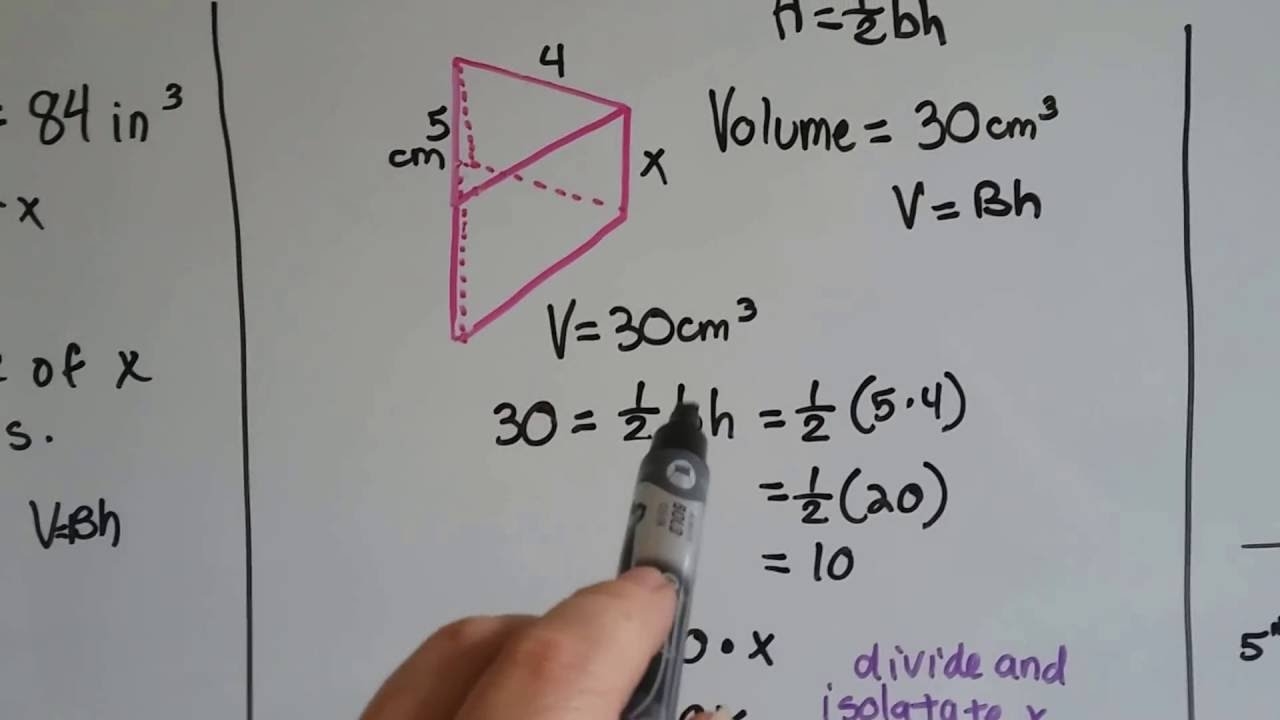 = 84 in³
· x
of x
s.
V=Bh
A = ½bh
4
5
cm
x
Volume = 30cm³
V = Bh
V = 30cm³
30 = ½ bh = ½ (5·4)
= ½ (20)
= 10
· x
divide and
isolatate x
5